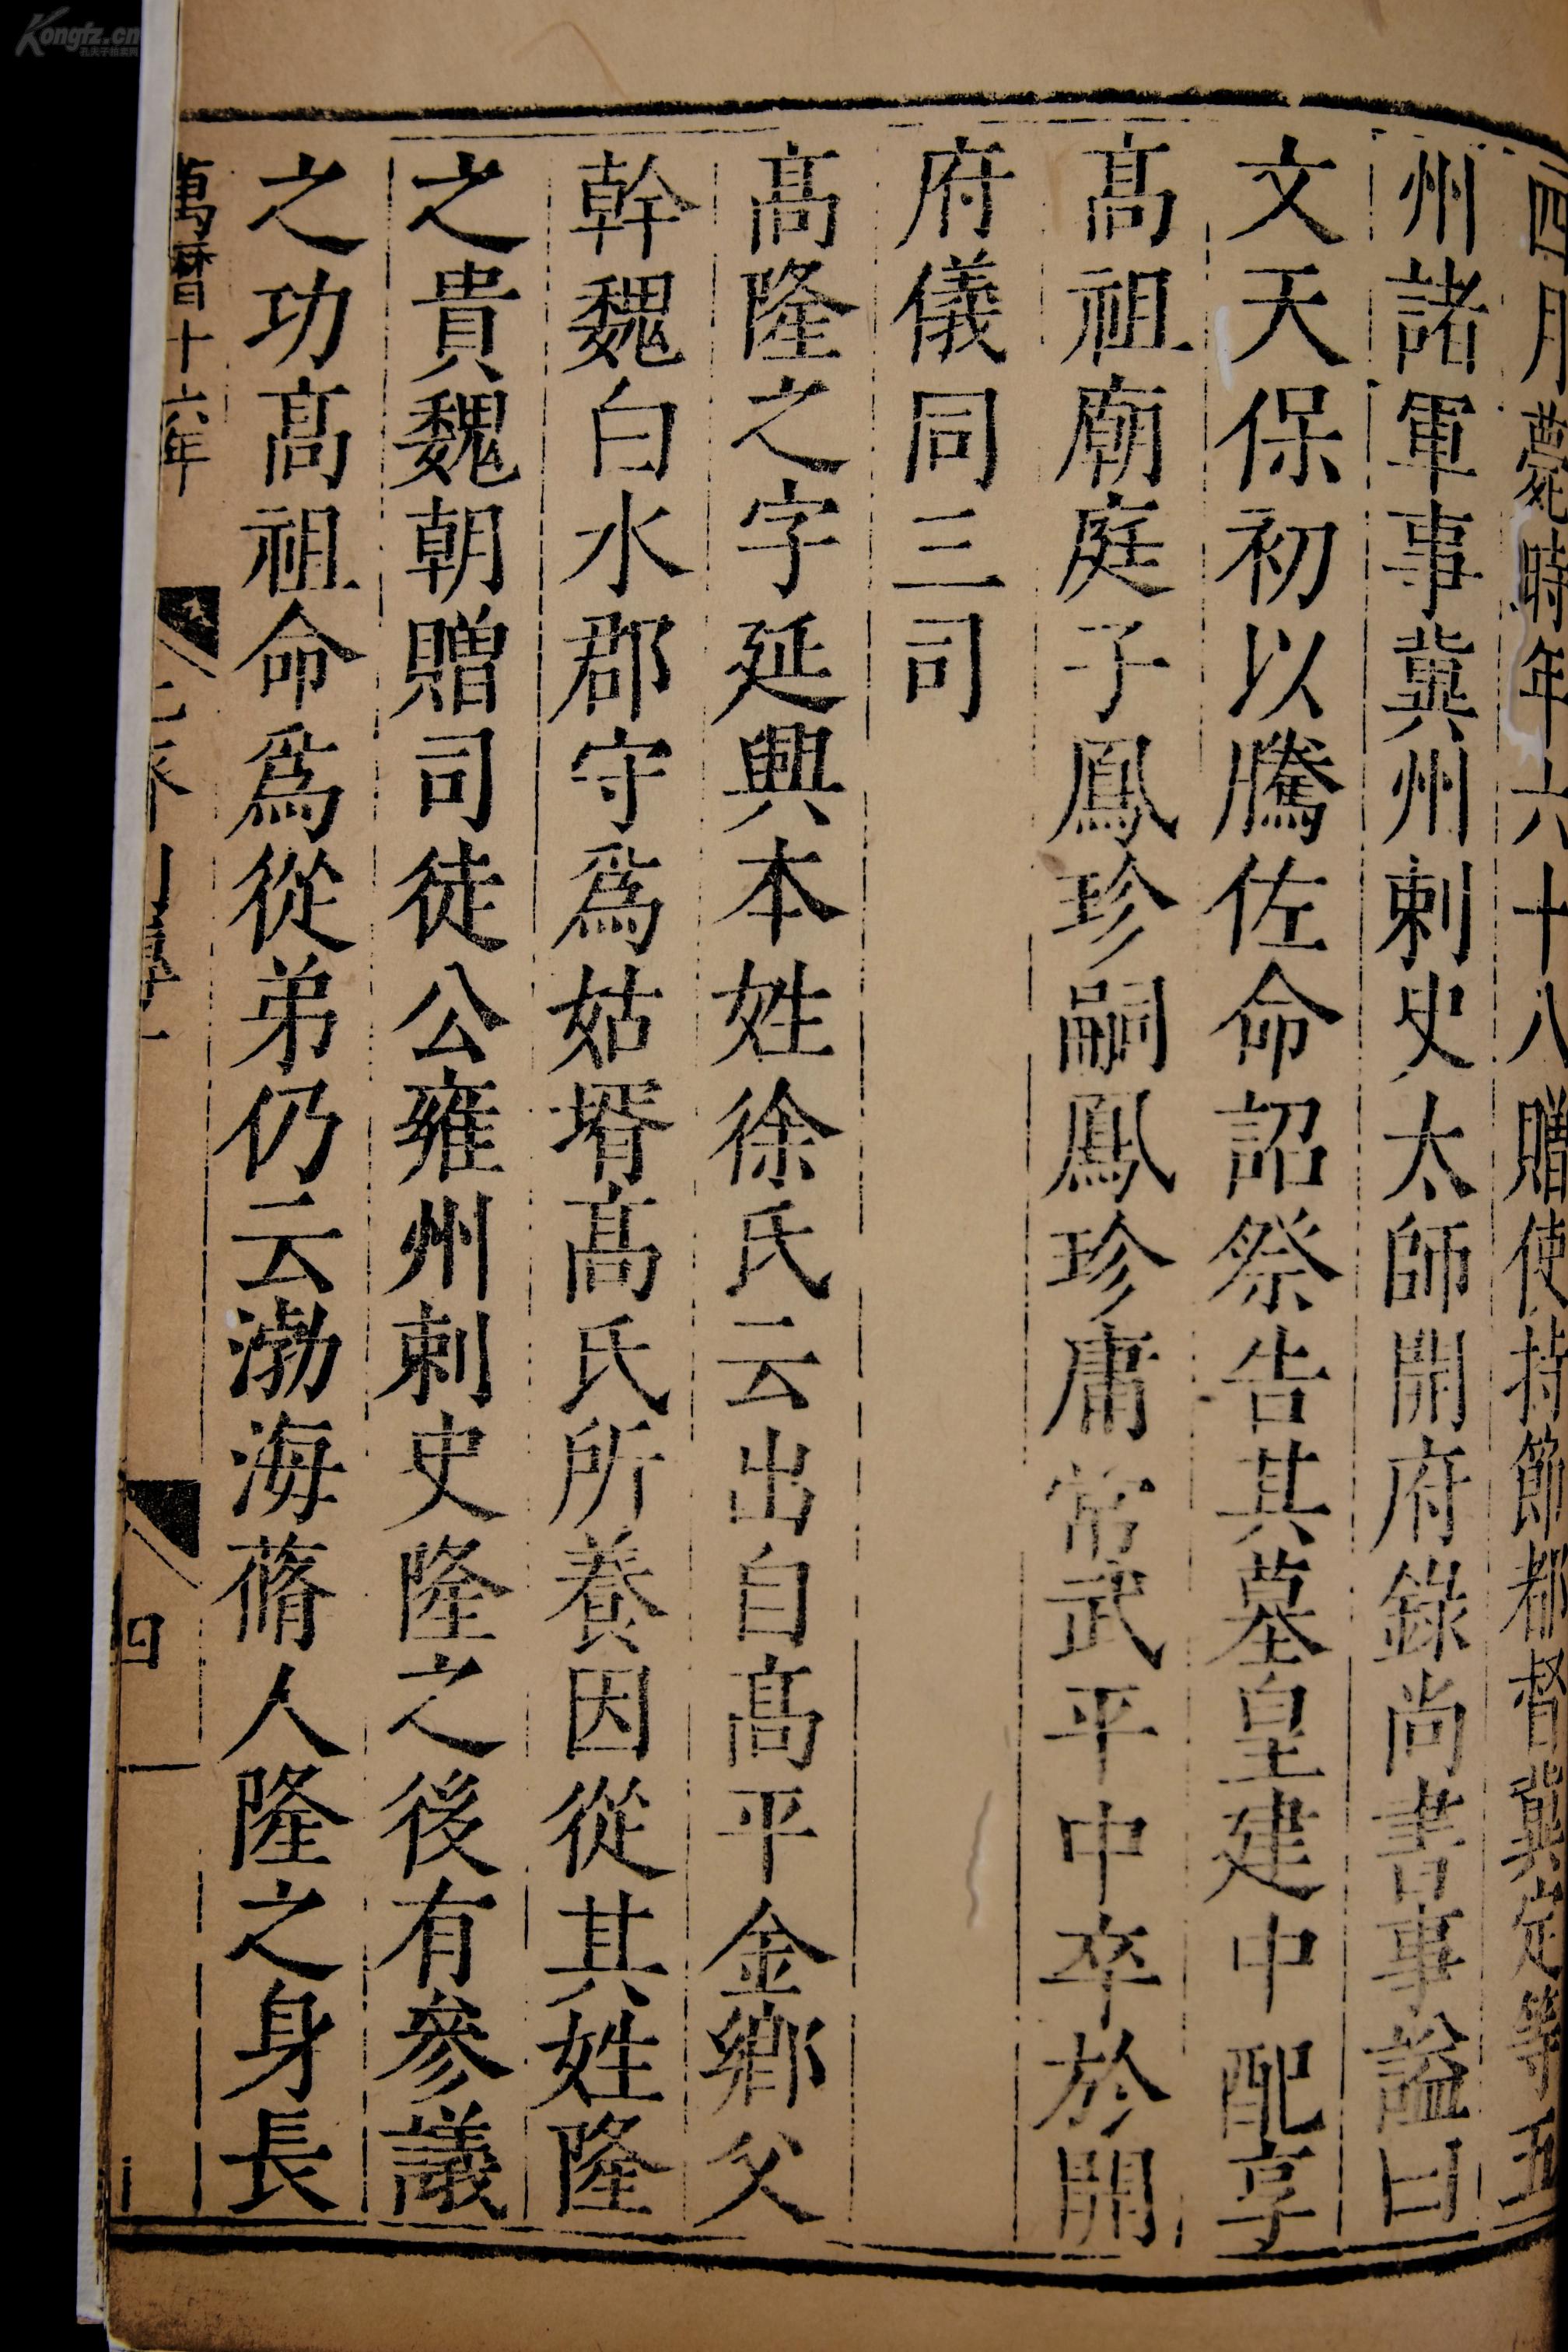 四月薨時年六十八贈使持節都督冀定等五
州諸軍事冀州刺史太師開府錄尚書事謚曰
文天保初以騰佐命詔祭告其墓皇建中配享
髙祖廟庭子鳳珍嗣鳳珍庸常武平中卒於開
府儀同三司
髙隆之字延興本姓徐氏云出自髙平金鄉父
幹魏白水郡守爲姑壻髙氏所養因從其姓隆
之貴魏朝贈司徒公雍州刺史隆之後有參議
之功髙祖命爲從弟仍云渤海蓨人隆之身長
萬曆十六年
四
Kongfz.cn